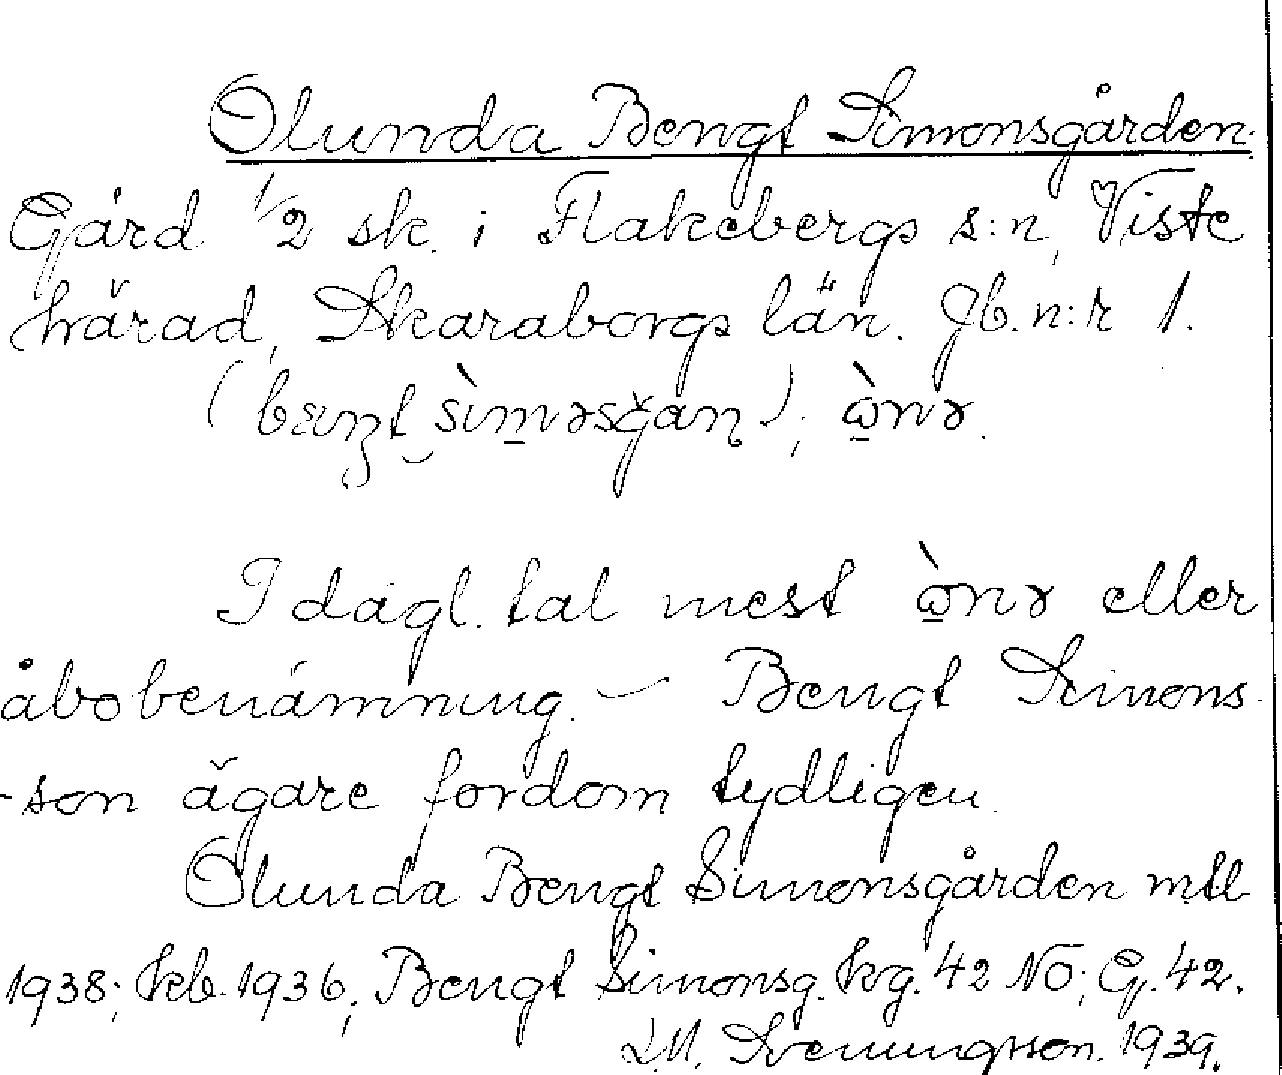 Olunda Bengt Simonsgården.
Gård 1/2 sk. i Flakebergs s:n, Viste
härad, Skaraborgs län. Jb. n:r 1.
(bæŋt sìm̲əsǧaɳ); ò̲nə.
I dagl. tal mest ò̲nə eller
åbobenämning. – Bengt Simons-
-son ägare fordom tydligen.
Olunda Bengt Simonsgården mtl
1938; kb. 1936; Bengt Simonsg. krg. 42 NO; G. 42.
L.M. Svenungsson. 1939.